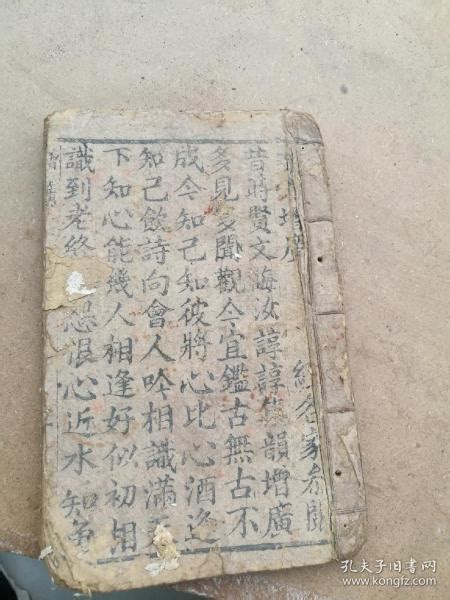 增廣
經名家叅閱
昔時賢文誨汝諄諄集韻增廣
多見多聞觀今宜鑑古無古不
成今知己知彼將心比心酒逢
知己飲詩向會人吟相識滿天
下知心能幾人相逢好似初相
識到老終怨恨心近水知魚
增廣
孔夫子旧书网
www.kongfz.com